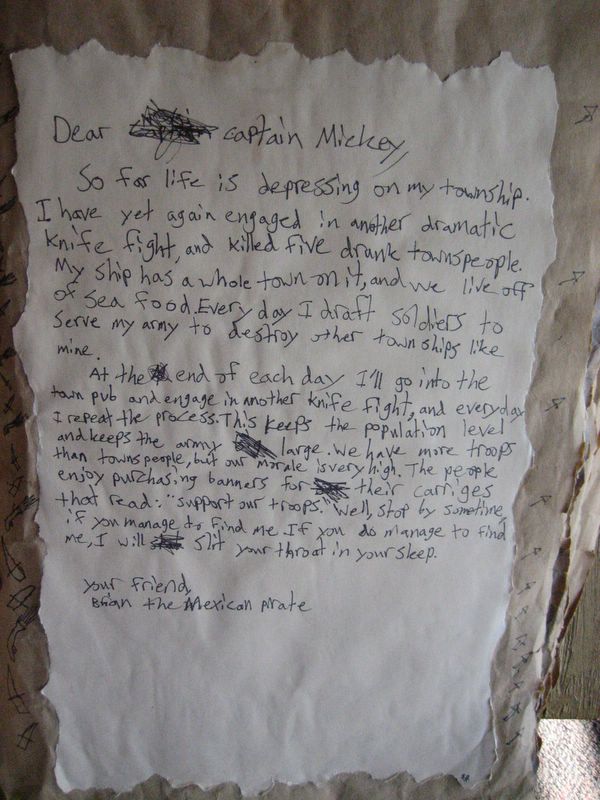 Dear captain Mickey,
So far life is depressing on my township.
I have yet again engaged in another dramatic
knife fight, and killed five drunk townspeople.
My ship has a whole town on it, and we live off
of sea food. Every day I draft soldiers to
serve my army to destroy other town ships like
mine.
At the end of each day I'll go into the
town pub and engage in another knife fight, and everyday
I repeat the process. This keeps the population level
and keeps the army large. We have more troops
than townspeople, but our morale is very high. The people
enjoy purchasing banners for their carriges
that read: "support our troops." Well, stop by sometime,
if you manage to find me. If you do manage to find
me, I will slit your throat in your sleep.
your friend,
Brian the Mexican pirate